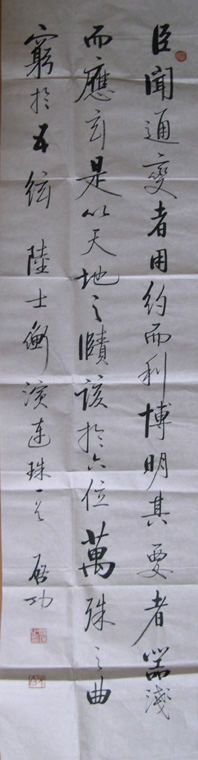 臣聞通變者用約而利博明其要者器淺
而應玄是以天地之賾該於六位萬殊之曲
窮於五絃 陸士衡演連珠一首 啟功